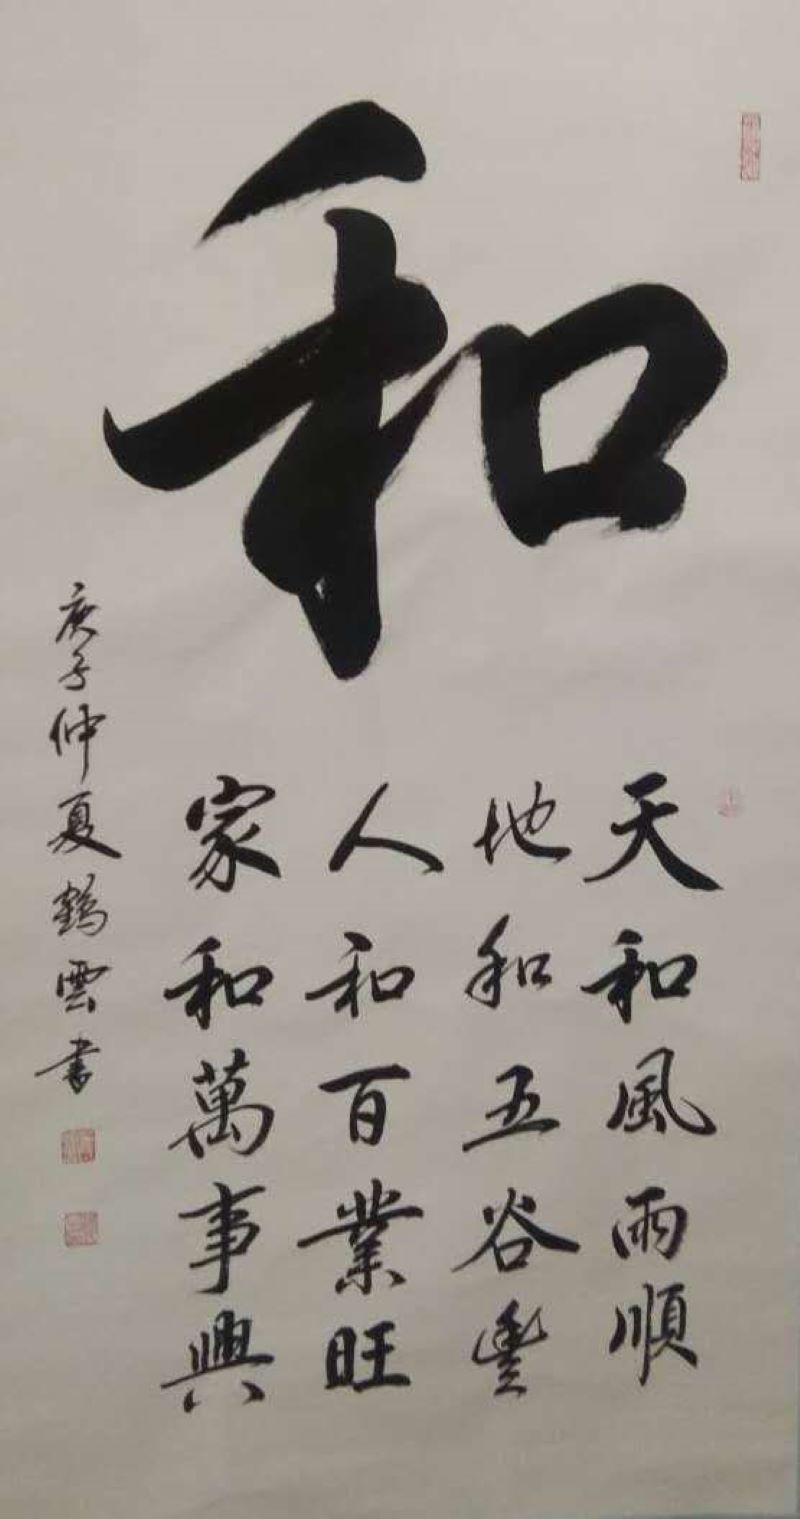 和
天和風雨順
地和五谷豐
人和百業旺
家和萬事興
庚子仲夏鶴雲书